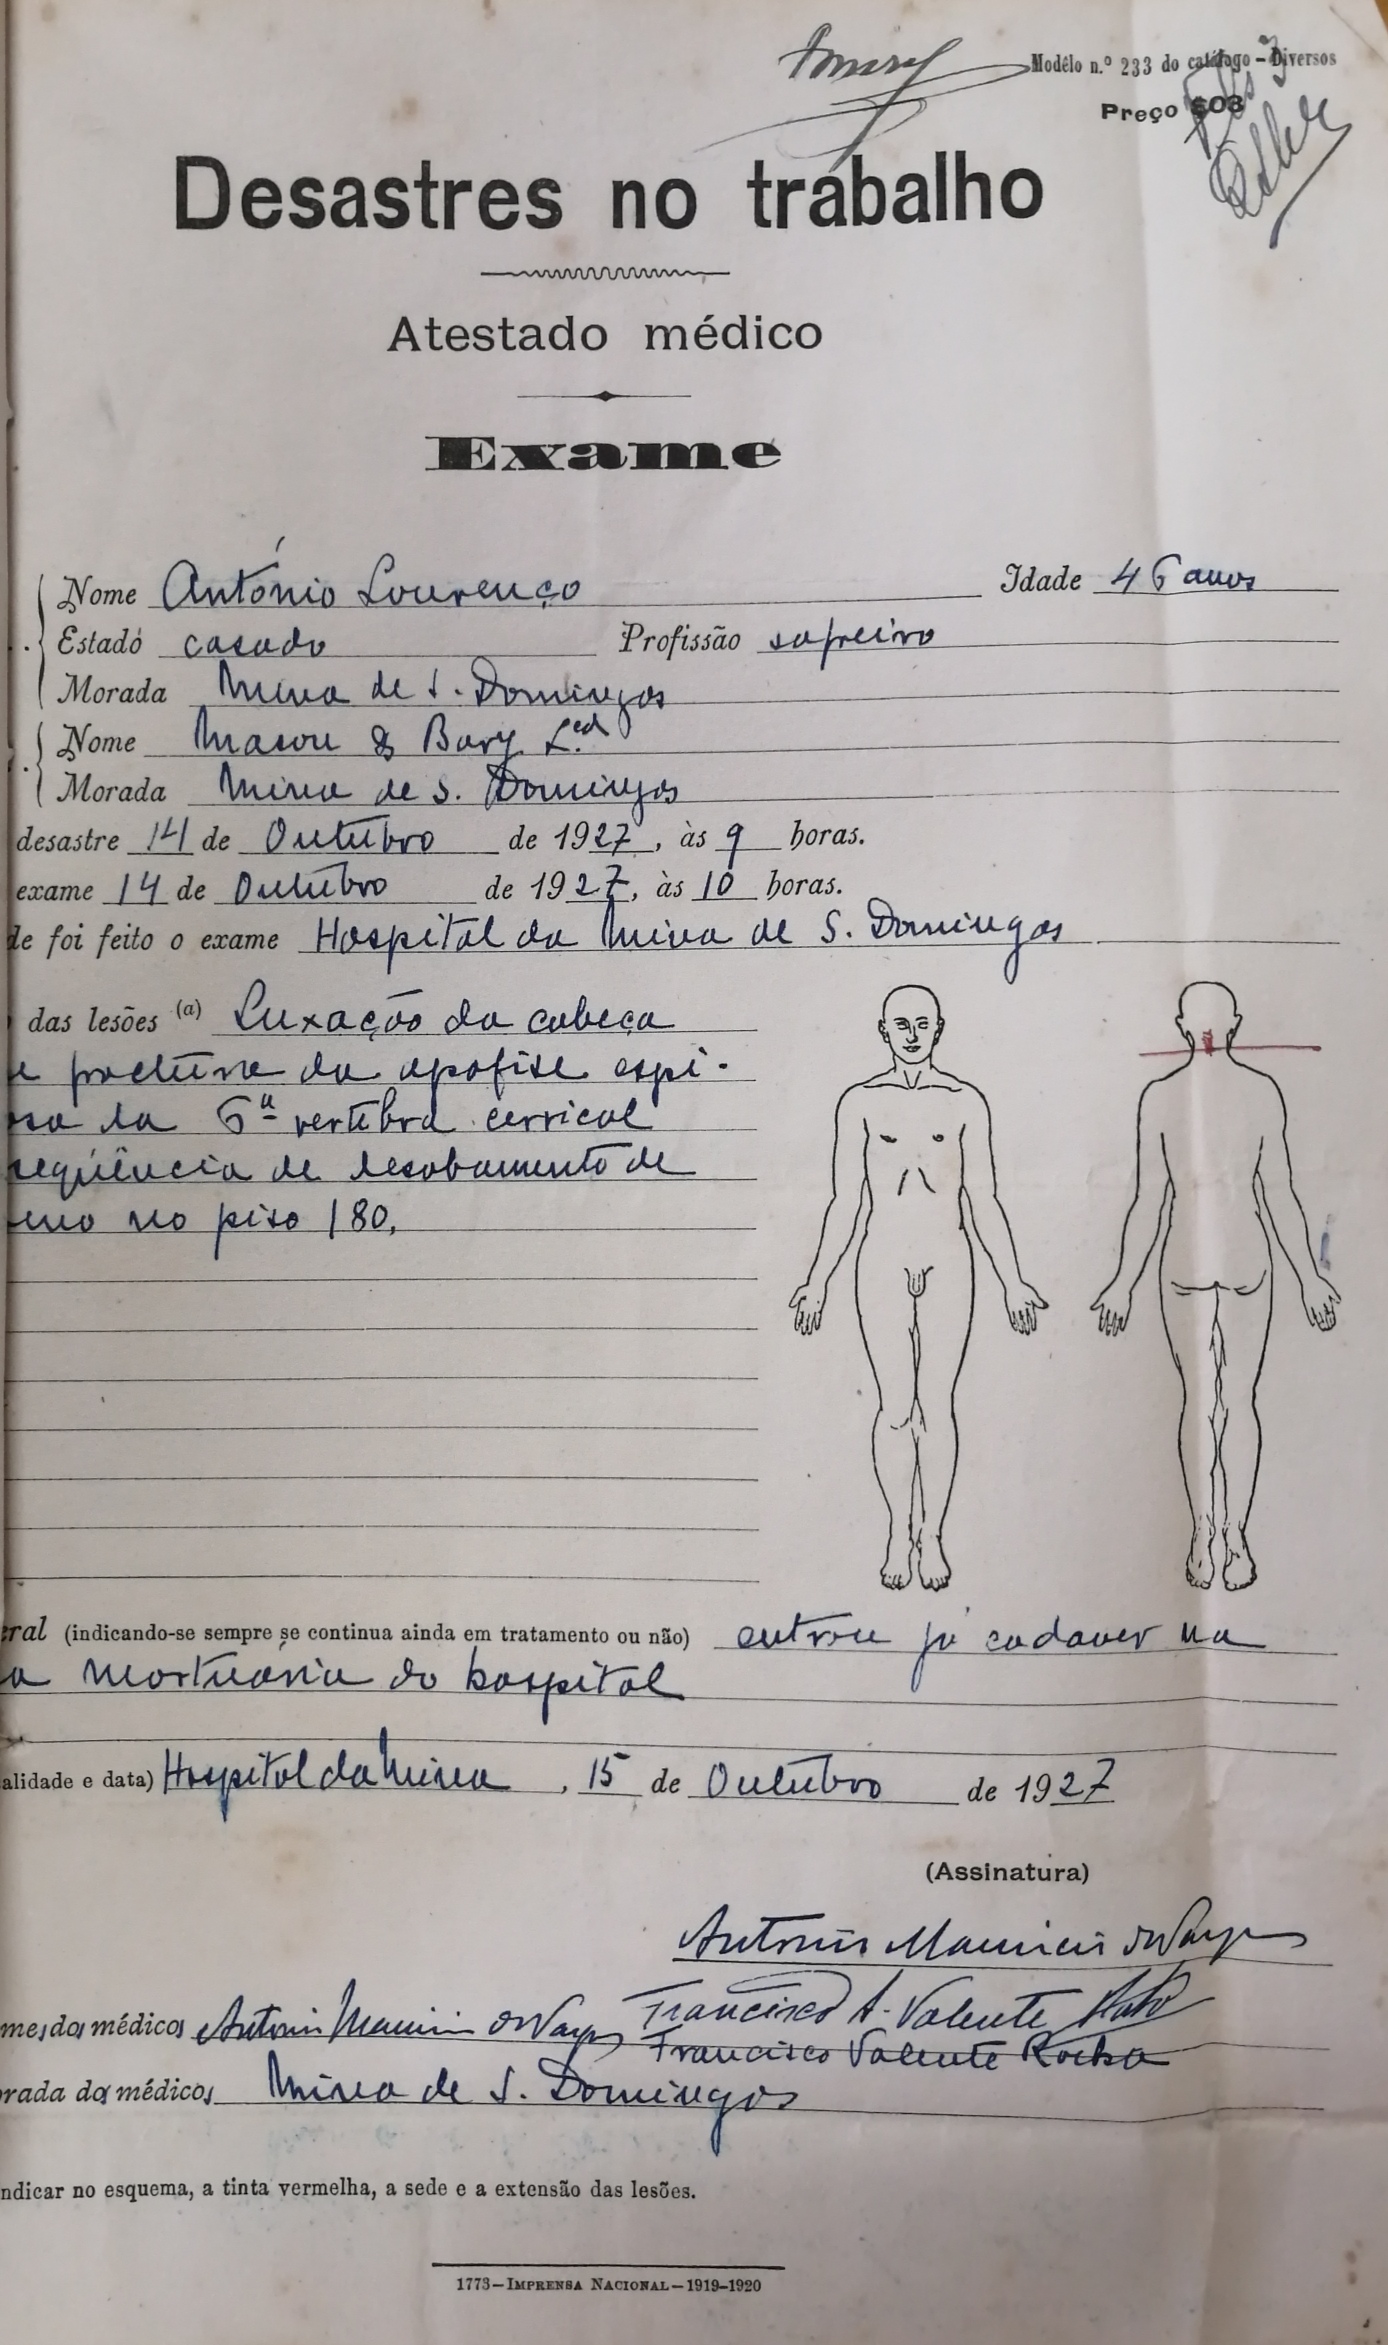 Modêlo n.º 233 do catálogo - Diversos
Preço $03
Desastres no trabalho
Atestado médico
Exame
Nome António Lourenço Idade 46 anos
Estado casado Profissão safreiro
Morada Mina de S. Domingos
Nome Mason & Barry L.ed
Morada Mina de S. Domingos
desastre 14 de Outubro de 1927, às 9 horas.
exame 14 de Outubro de 1927, às 10 horas.
de foi feito o exame Hospital da Mina de S. Domingos
das lesões (a) Luxação da cabeça
e fractura da apofise espi-
osa da 6ª vertebra cervical
seqüência de desabamento de
eno no piso 180.
eral (indicando-se sempre se continua ainda em tratamento ou não) entrou já cadaver na
a mortuária do hospital
alidade e data) Hospital da Mina, 15 de Outubro de 1927
(Assinatura)
António Mauricio de Vargas
mes dos médicos António Mauricio de Vargas Francisco A. Valente
Francisco Valente Rocha
orada dos médicos Mina de S. Domingos
ndicar no esquema, a tinta vermelha, a sede e a extensão das lesões.
1773-IMPRENSA NACIONAL-1919-1920